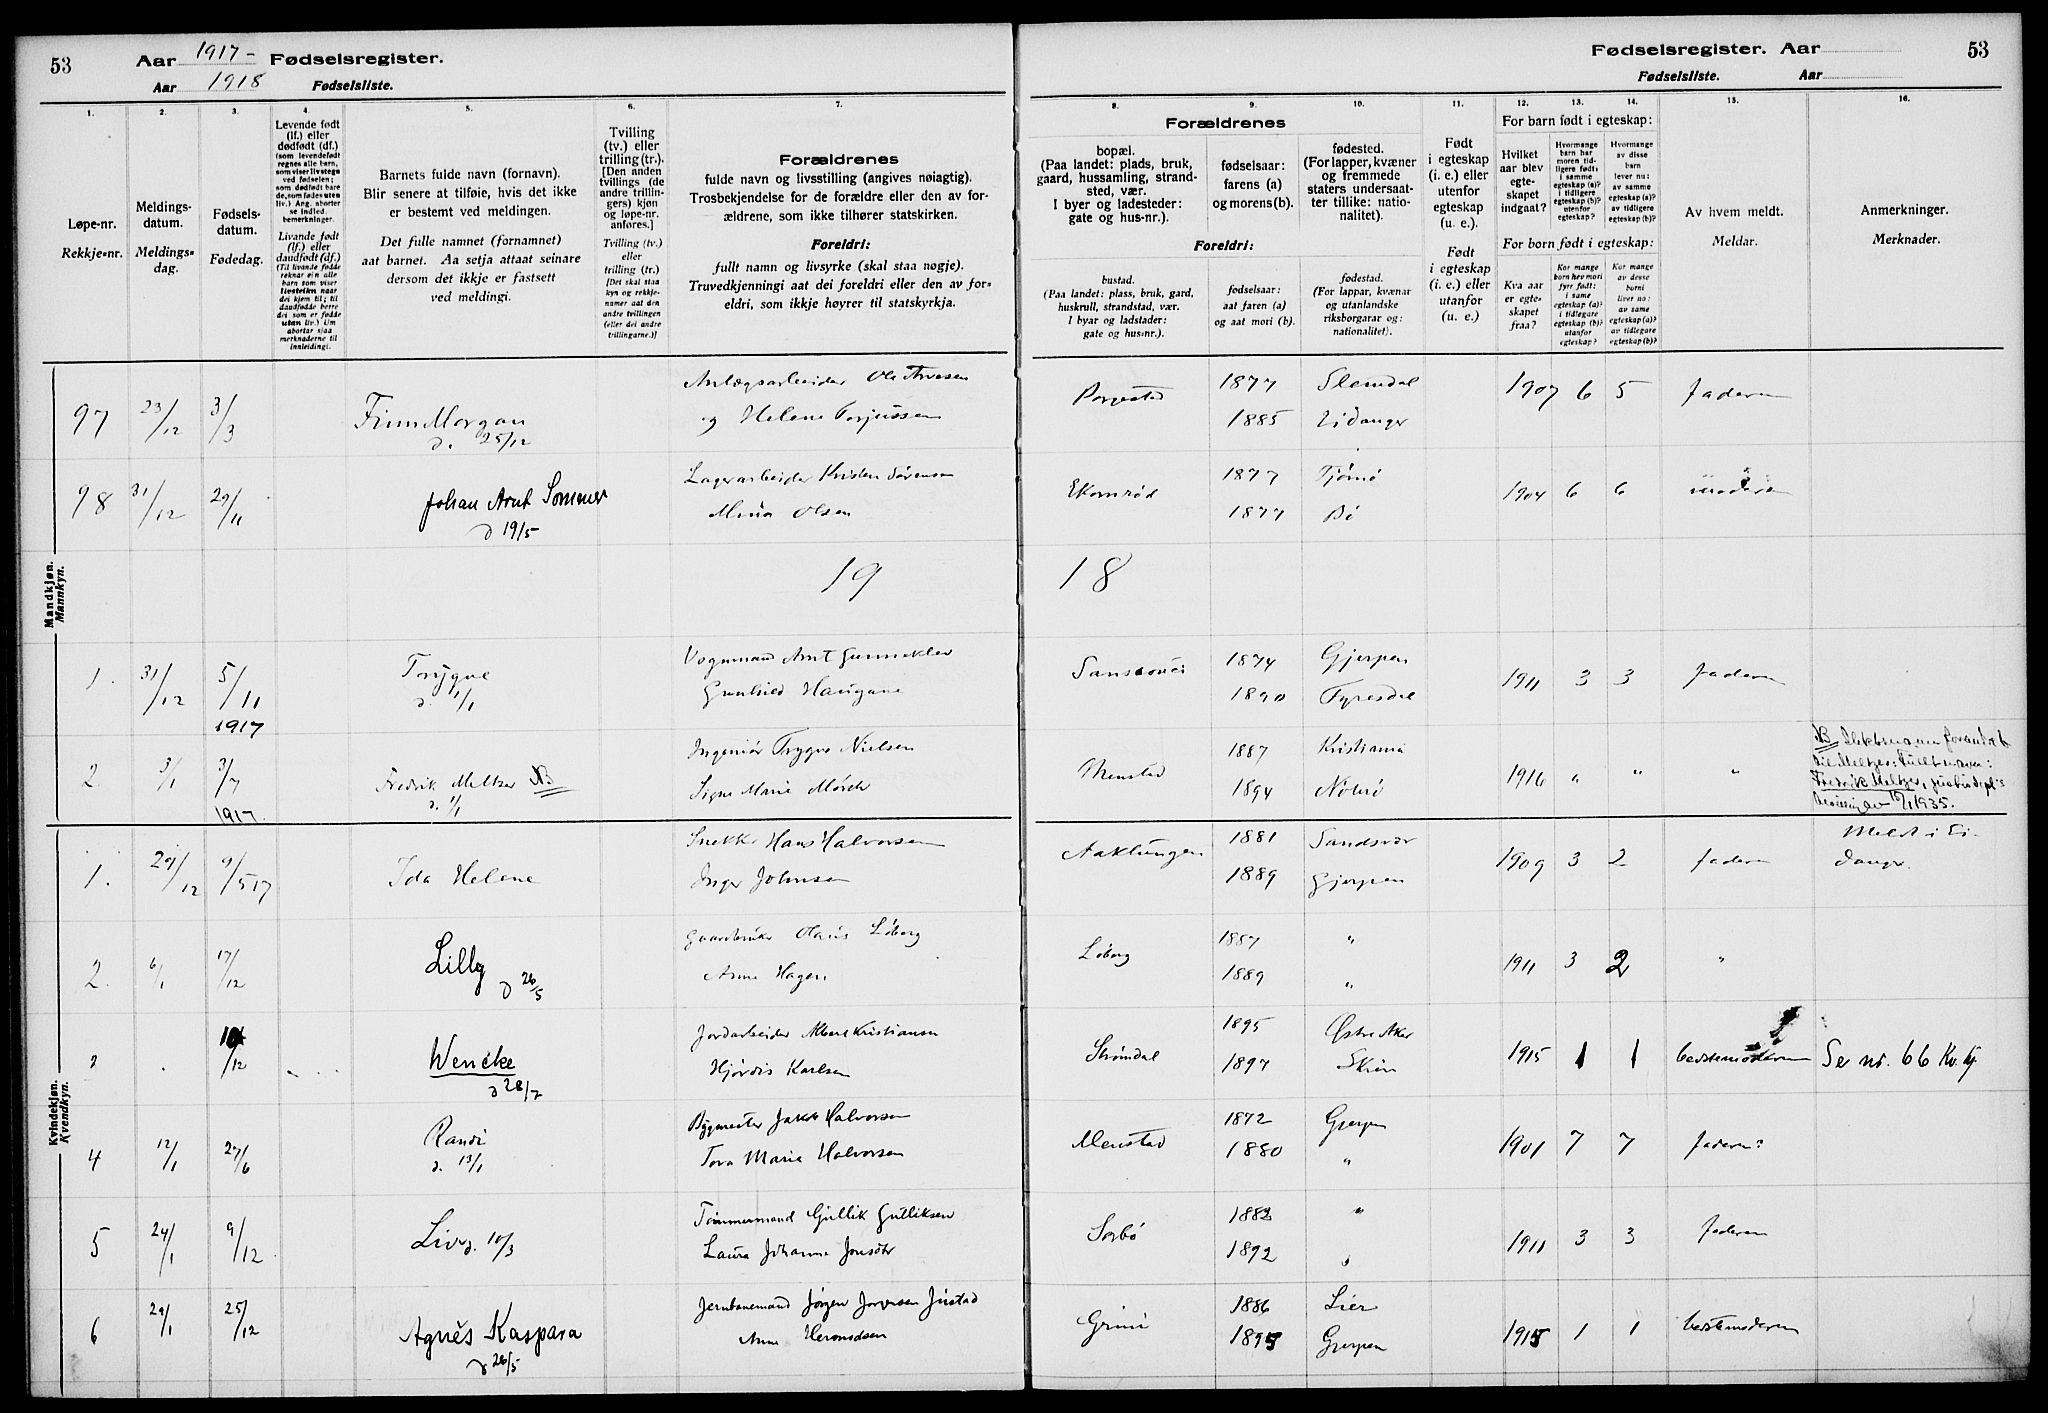 53 Aar 1917- Fødselsregister.
Aar 1918 Fødselsliste.
Fødselsregister. Aar 53
Fødselsliste. Aar
1. 2. 3. 4. 5. 6. 7. 8. 9. 10. 11. 12. 13. 14. 15. 16.
Løpe-nr.
Rekkje-nr.
Meldings-
datum.
Meldings-
dag.
Fødsels-
datum.
Fødedag.
Levende født
(lf.) eller
dødfødt (df.)
(som levendefødt
regnes alle barn,
som viser livstegn
ved fødselen;
som dødfødt bare
de, som fødes uten
liv.) Ang. aborter
se indled.
bemerkninger.
Livande født
(lf.) eller
daudfødt (df.)
(Til livande fødde
reknar ein alle
born som viser
livsteikn naar
dei kjem til; til
daudfødde berre
dei som er fødde
utan liv.) Um
abortar sjaa
merknaderne til
innleidingi.
Barnets fulde navn (fornavn).
Blir senere at tilføie, hvis det ikke
er bestemt ved meldingen.
Det fulle namnet (fornamnet)
aat barnet. Aa setja attaat seinare
dersom det ikkje er fastsett
ved meldingi.
Tvilling
(tv.) eller
trilling (tr.).
[Den anden
tvillings (de
andre trillin-
gers) kjøn
og løpe-nr.
anføres.]
Tvilling (tv.)
eller
trilling (tr.)
[Det skal staa
kyn og rekkje-
numer aat den
andre tvillingen
(eller dei andre
trillingarne.)]
Forældrenes
fulde navn og livsstilling (angives nøiagtig).
Trosbekjendelse for de forældre eller den av for-
ældrene, som ikke tilhører statskirken.
Foreldri:
fullt namn og livsyrke (skal staa nøgje).
Truvedkjenningi aat dei foreldri eller den av for-
eldri, som ikkje høyrer til statskyrkja.
Forældrenes
bopæl.
(Paa landet: plads, bruk,
gaard, hussamling, strand-
sted, vær.
I byer og ladesteder:
gate og hus-nr.).
fødselsaar:
farens (a)
og morens (b).
fødested.
(For lapper, kvæner
og fremmede
staters undersaat-
ter tillike: natio-
nalitet).
Foreldri:
bustad.
(Paa landet: plass, bruk, gard,
huskrull, strandstad, vær.
I byar og ladstader:
gate og hus-nr.).
fødselsaar:
aat faren (a)
og aat mori (b).
fødestad.
(For lappar, kvænar
og utanlandske
riksborgarar og:
nationalitet).
Født
i egteskap
(i. e.) eller
utenfor
egteskap
(u. e.).
Født
i egteskap
(i. e.) eller
utanfor
(u. e.)
For barn født i egteskap:
Hvilket
aar blev
egte-
skapet
indgaat?
Hvormange
barn har
moren tid-
ligere født:
i samme
egteskap (a)?
i tidligere
egteskap (b)?
utenfor
egteskap?
Hvormange
av disse
barn
lever nu:
av samme
egteskap (a)?
av tidligere
egteskap (b)?
For born født i egteskap:
Kva aar
er egte-
skapet
fraa?
Kor mange
born hev mori
fyrr født:
i same
egteskap (a)?
i tidlegare
egteskap (b)?
utanfor
egteskap?
Kor mange
av desse
borni
liver no:
av same
egteskap (a)?
av tidlegare
egteskap (b)?
Av hvem meldt.
Meldar.
Anmerkninger.
Merknader.
Mandkjøn.
Mannkyn.
97 23/12 3/3 Finn Morgan d. 25/12 Anlægsarbeider Ole
og Helene Torjussen 1877 Slemdal 1885 Eidanger 1907 6 5 faderen
98 31/12 29/11 Johan Arnt Sommer d 19/5 Lagerarbeider Kristen Sørensen
Mina Olsen Ekornrød 1877 Tjømø 1877 Bø 1904 6 6 moderen
19 18
1. 31/12 5/11 1917 Trygve d. 1/1 Vognmand Arnt Gunneklev
Gunhild Haugane Sanssouci 1874 Gjerpen 1890 Fyresdal 1911 3 3 faderen
2. 3/1 3/7 1917. Fredrik Meltzer NB d. 1/1 Ingeniør Trygve Nielsen
Signe Marie Mørch Menstad 1887 Kristiania 1894 Nøterø 1916 " " "
NB Slektsnavn forandret
til Meltzer: Fullt navn:
Fredrik Meltzer, justisdept's
1935.
Kvindekjøn.
Kvendkyn.
1. 29/12 9/5 17 Ida Helene Snekker Hans Halvorsen
Inger Johnsen Aaklungen 1881 Sandsvær 1889 Gjerpen 1909 3 2 faderen Meldt i Ei-
danger.
2. 6/1 17/12 Lilly d 26/5 Gaardbruker Olaus Løberg
Anne Hagen Løberg 1887 " 1889 " 1911 3 2 "
3 /12 Wencke d 28/7 Jordarbeider Albert Kristiansen
Hjørdis Karlsen Strømdal 1895 Østre Aker 1897 Skien 1915 1 1 bestemoderen Se nr. 66 Kv. kj.
4 12/1 27/6 Randi d. 13/1 Bygmester Jakob Halvorsen
Tora Marie Halvorsen Menstad 1872 Gjerpen 1880 " 1901 7 7 faderen
5 24/1 9/12 Liv d. 10/3 Tømmermand Gullik Gulliksen
Laura Johanne 1882 " 1892 " 1911 3 3 faderen
6 29/1 25/12 Agnes Kaspara d 26/5 Jernbanemand Jørgen
Anne Grini 1886 Lier 1895 Gjerpen 1915 1 1 bestemoderen